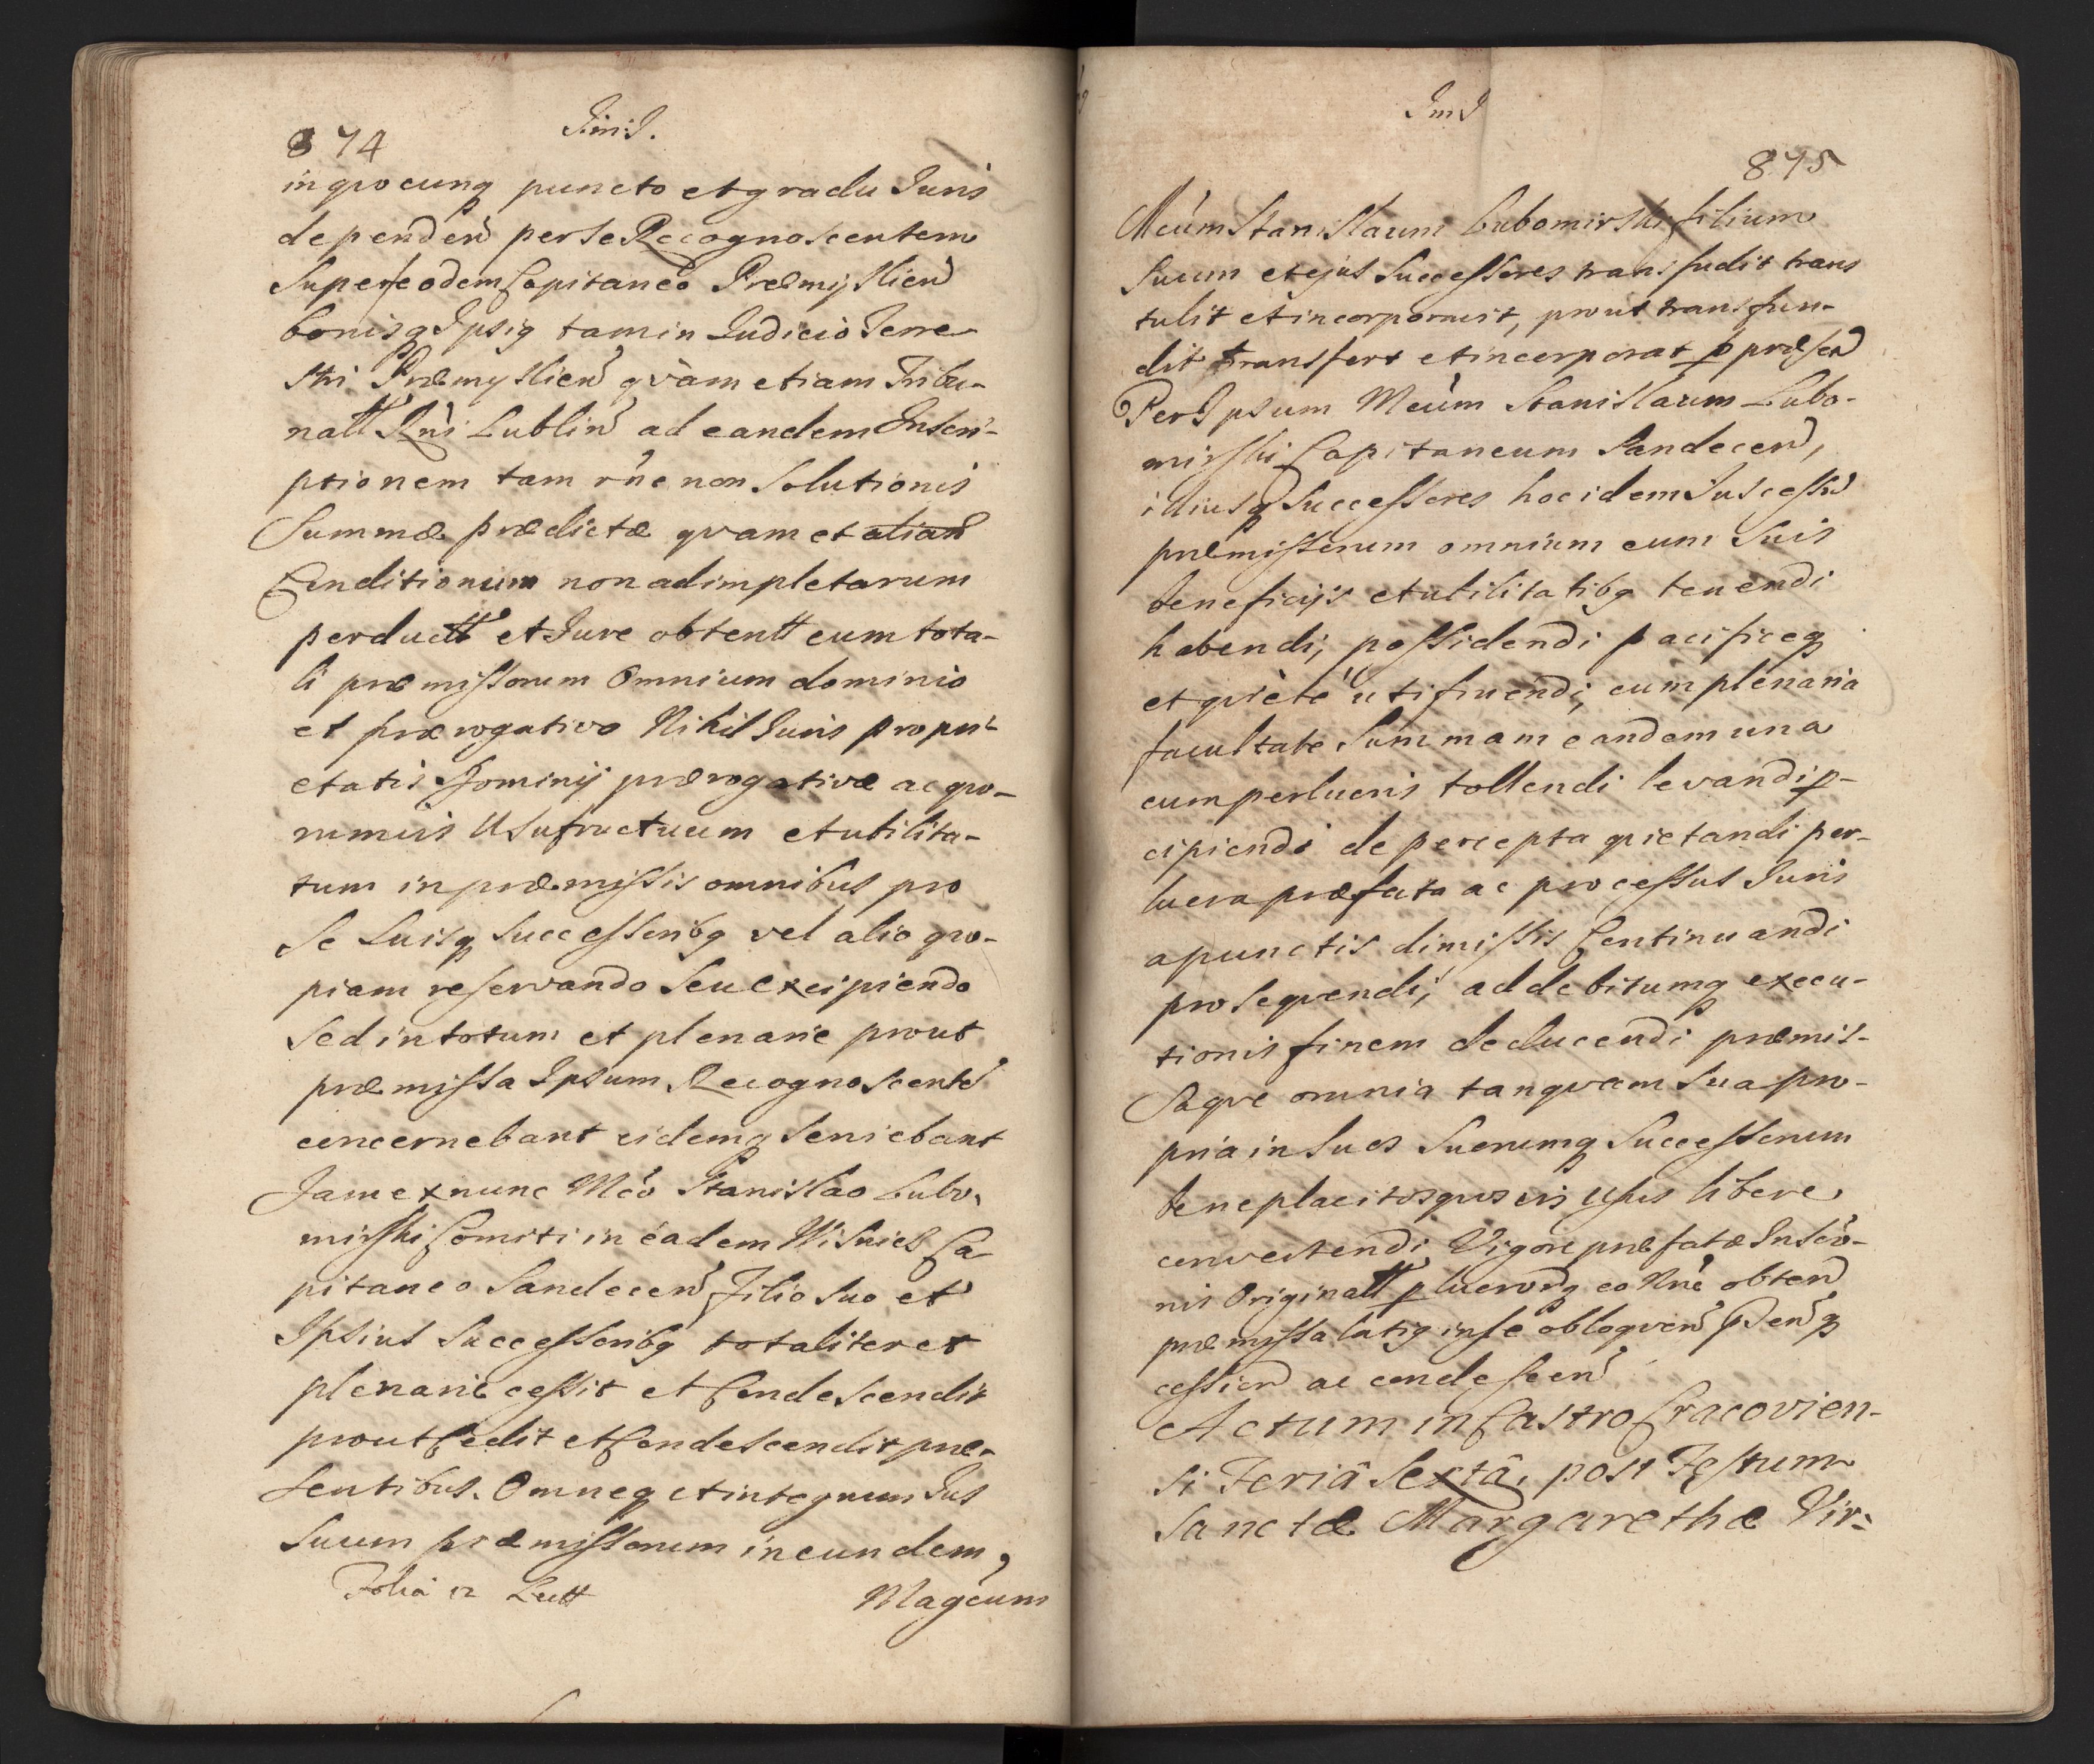 874
J. in J.
in quocunq puncto et gradu Juris
dependen per se Recognoscentem
Super eodem Capitaneo Præmyslien
bonisq Ipsiq tam in Judicio Terre
stri Præmyslien qvàm etiam Tribu-
natt Rni Lublin ad eandem Inscri-
ptionem tam rne non Solutionis
Summæ prædictæ qvam et aliar
Conditionum non adimpletarum
perductt et Jure obtentt cum tota-
li præmissorum Omnium dominio
et prærogativa Nihil Juris propri-
etatis Dominij prærogativæ ac quo-
rumvis Usufructuum et utilita-
tum in præmissis omnibus pro
Se Suisq Successoribq vel alio quo-
piam reservando Seu excipiendo
Sed in totum et plenarie prout
præmissa Ipsum Recognoscente
concernebant eidemq Serviebant
Jam ex nunc Mco Stanislao Lubo-
mirski Comiti in eadem Wisnicz Ca
pitaneo Sandecen Filio Suo et
Ipsius Successoribq totaliter et
plenarie cessit et Condescendit
prout Cedit et Condescendit præ-
sentibus. Omneq et integrum Jus
Suum præmissorum in eundem,
Folia 12 Lutt
Magcum
J in J
875
Mcum Stanislaum Lubomirski filium
Suum et ejus Successores transfudit trans
tulit et incorporavit, prout transfun-
dit transfert et incorporat p præsen
Per Ipsum Mcum Stanislaum Lubo-
mirski Capitaneum Sandecen,
illiusq Successores hoc idem Jus cessu
præmissorum omnium cum Suis
beneficijs et utilitatibq tenendi
habendi, possidendi pacificeq
et qviete utifruendi, cum plenaria
facultate Summam eandem una
cum perlucris tollendi levandi p-
cipiendi de percepta qvietandi per-
lucra præfata ac processus Juris
a punctis dimissis Continuandi
proseqvendi, ad debitumq execu-
tionis finem deducendi præmis-
saqve omnia tanqvam Sua pro-
pria in Suos Suorumq Successorum
beneplacitos quosvis usus libere
convertendi Vigore præfatæ Inscrio-
nis Originatt p lucrorq eo Rne obten
præmissa latiq in se obloqven
cession ac condescen
Actum in Castro Cracovien-
si Feriâ Sextâ, post Festum
Sanctæ Margarethæ Vir-